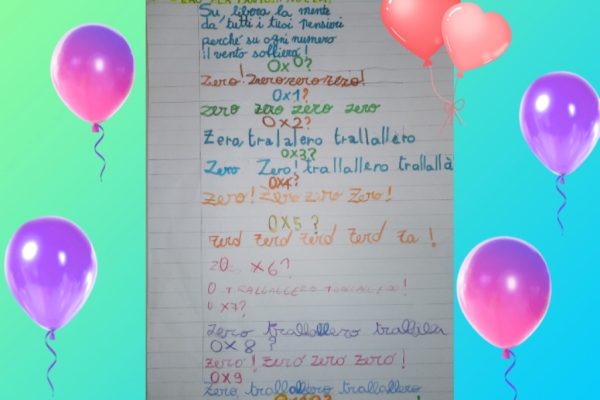 Su, libera la mente
da tutti i tuoi pensieri
perché su ogni numero
il vento soffierà!
0x0?
Zero! Zero zero zero!
0x1?
zero zero zero zero
0x2?
Zero, tralalero trallallero
0x3?
Zero Zero! trallallero trallallà
0x4?
zero! Zero zero Zero!
0x5?
zero zero zero zero za!
x6?
0 TRALLALLERO
0 x7?
zero trallallero
0x8?
zero! zero zero zero!
0x9
zero trallallero trallallero